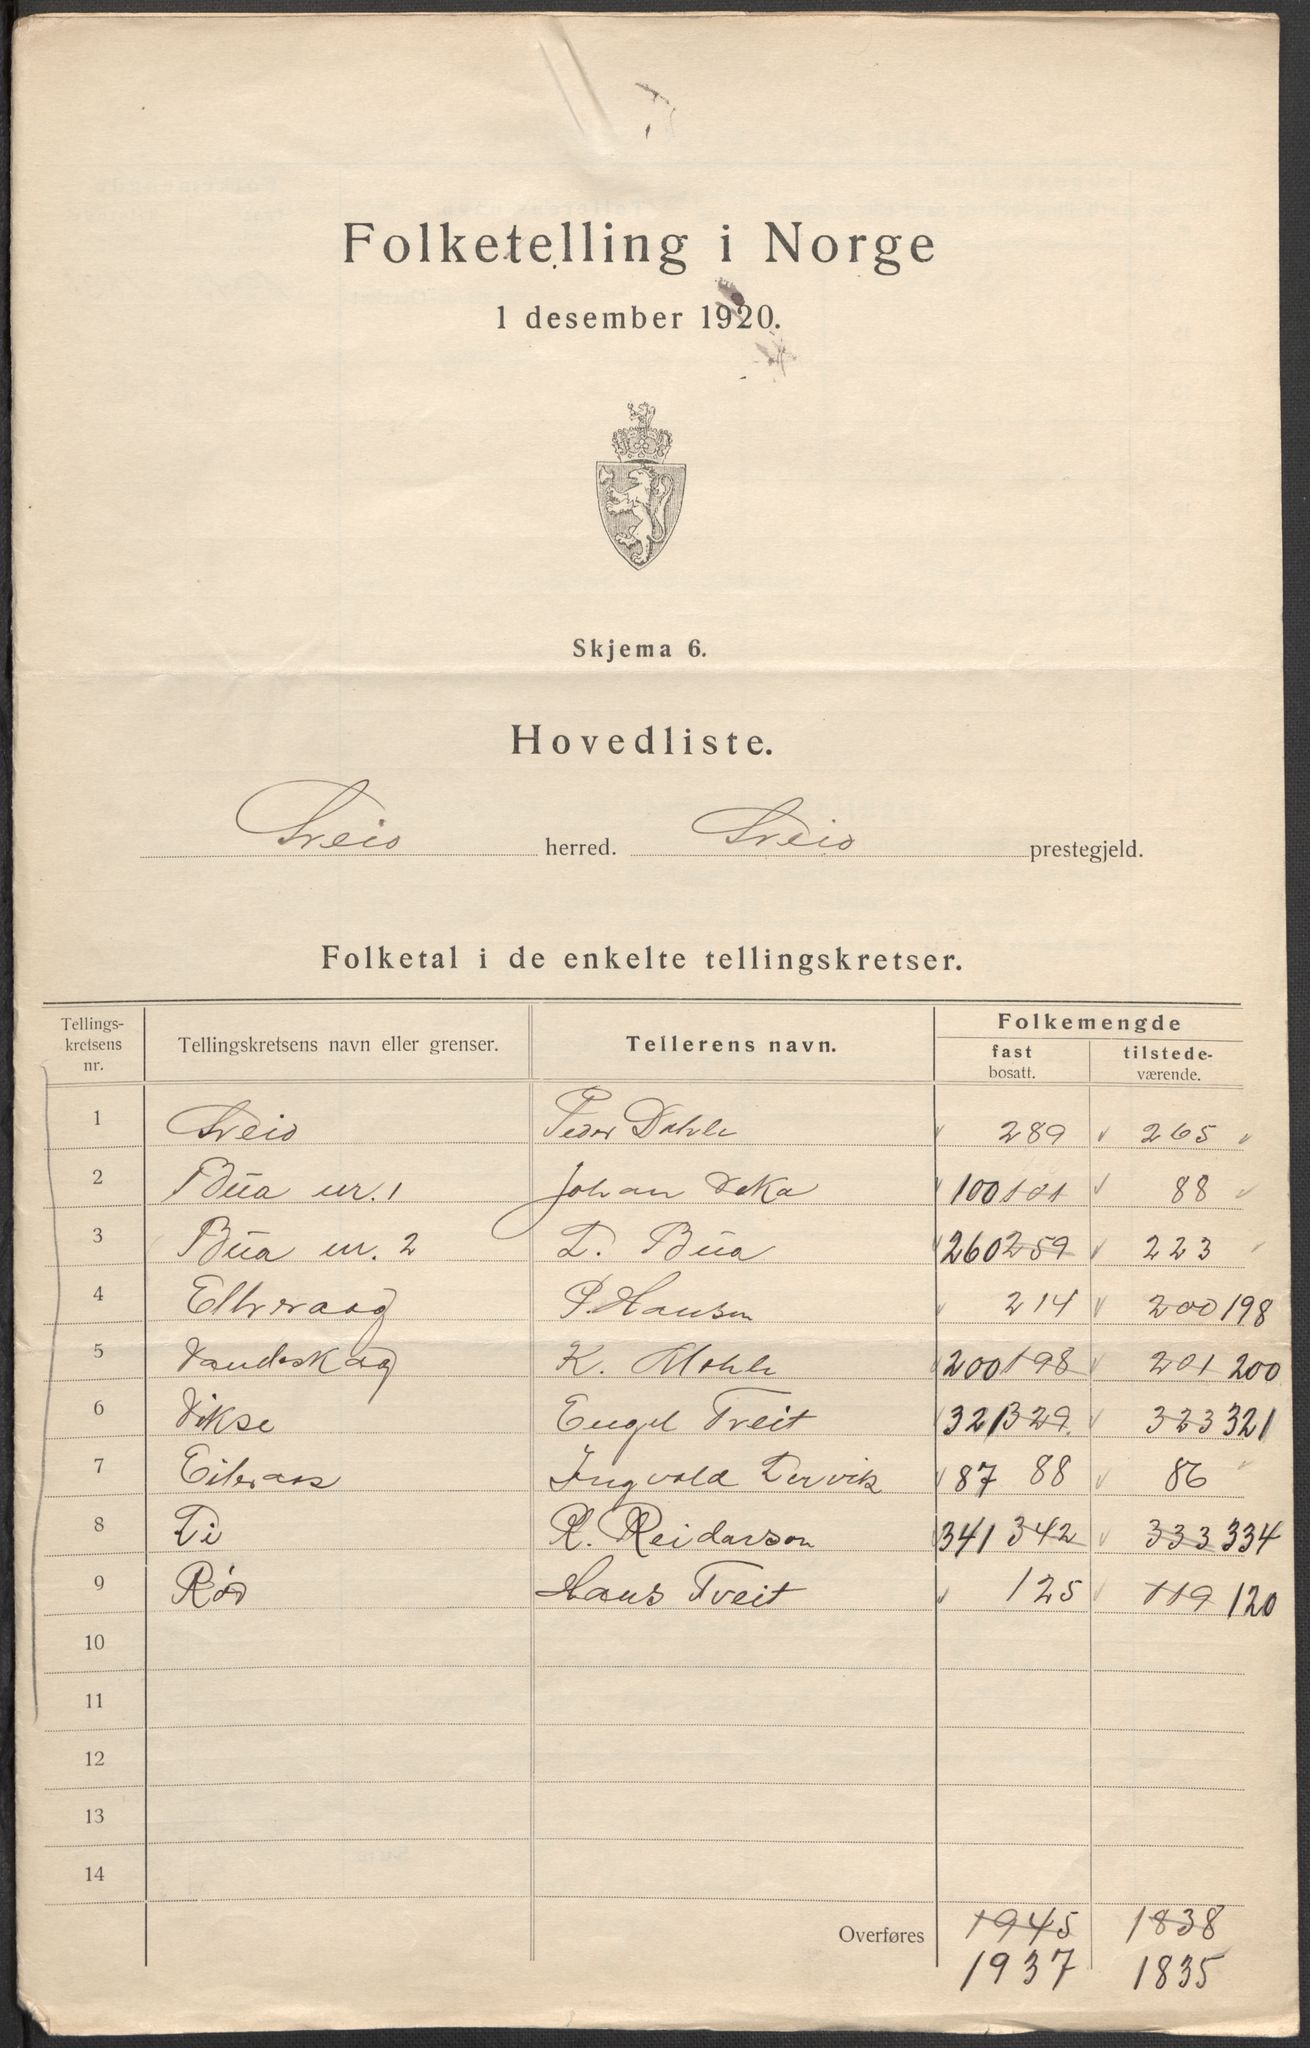 Folketelling i Norge
1 desember 1920.
Skjema 6.
Hovedliste.
Sveio herred. Sveio prestegjeld.
Folketal i de enkelte tellingskretser.
Tellings-kretsens nr. Tellingskretsens navn eller grenser. Tellerens navn. Folkemengde
fast bosatt. tilstede-værende.
1 Sveio Peder Dahle 289 265
2 Bua nr. 1 Johan 100 101 88
3 Bua nr. 2 T. Bua 260 259 223
4 Elleraag P. Hansen 214 200 198
5 Vandaskog K. Mæhle 200 198 201 200
6 Vikse Engel Tveit 321 329 323 321
7 Eileraas Ingvald Tervik 87 88 86
8 Ti R. Reidarson 341 342 333 334
9 Rød Hans Tveit 125 119 120
10
11
12
13
14
Overføres 1945 1838
1937 1835